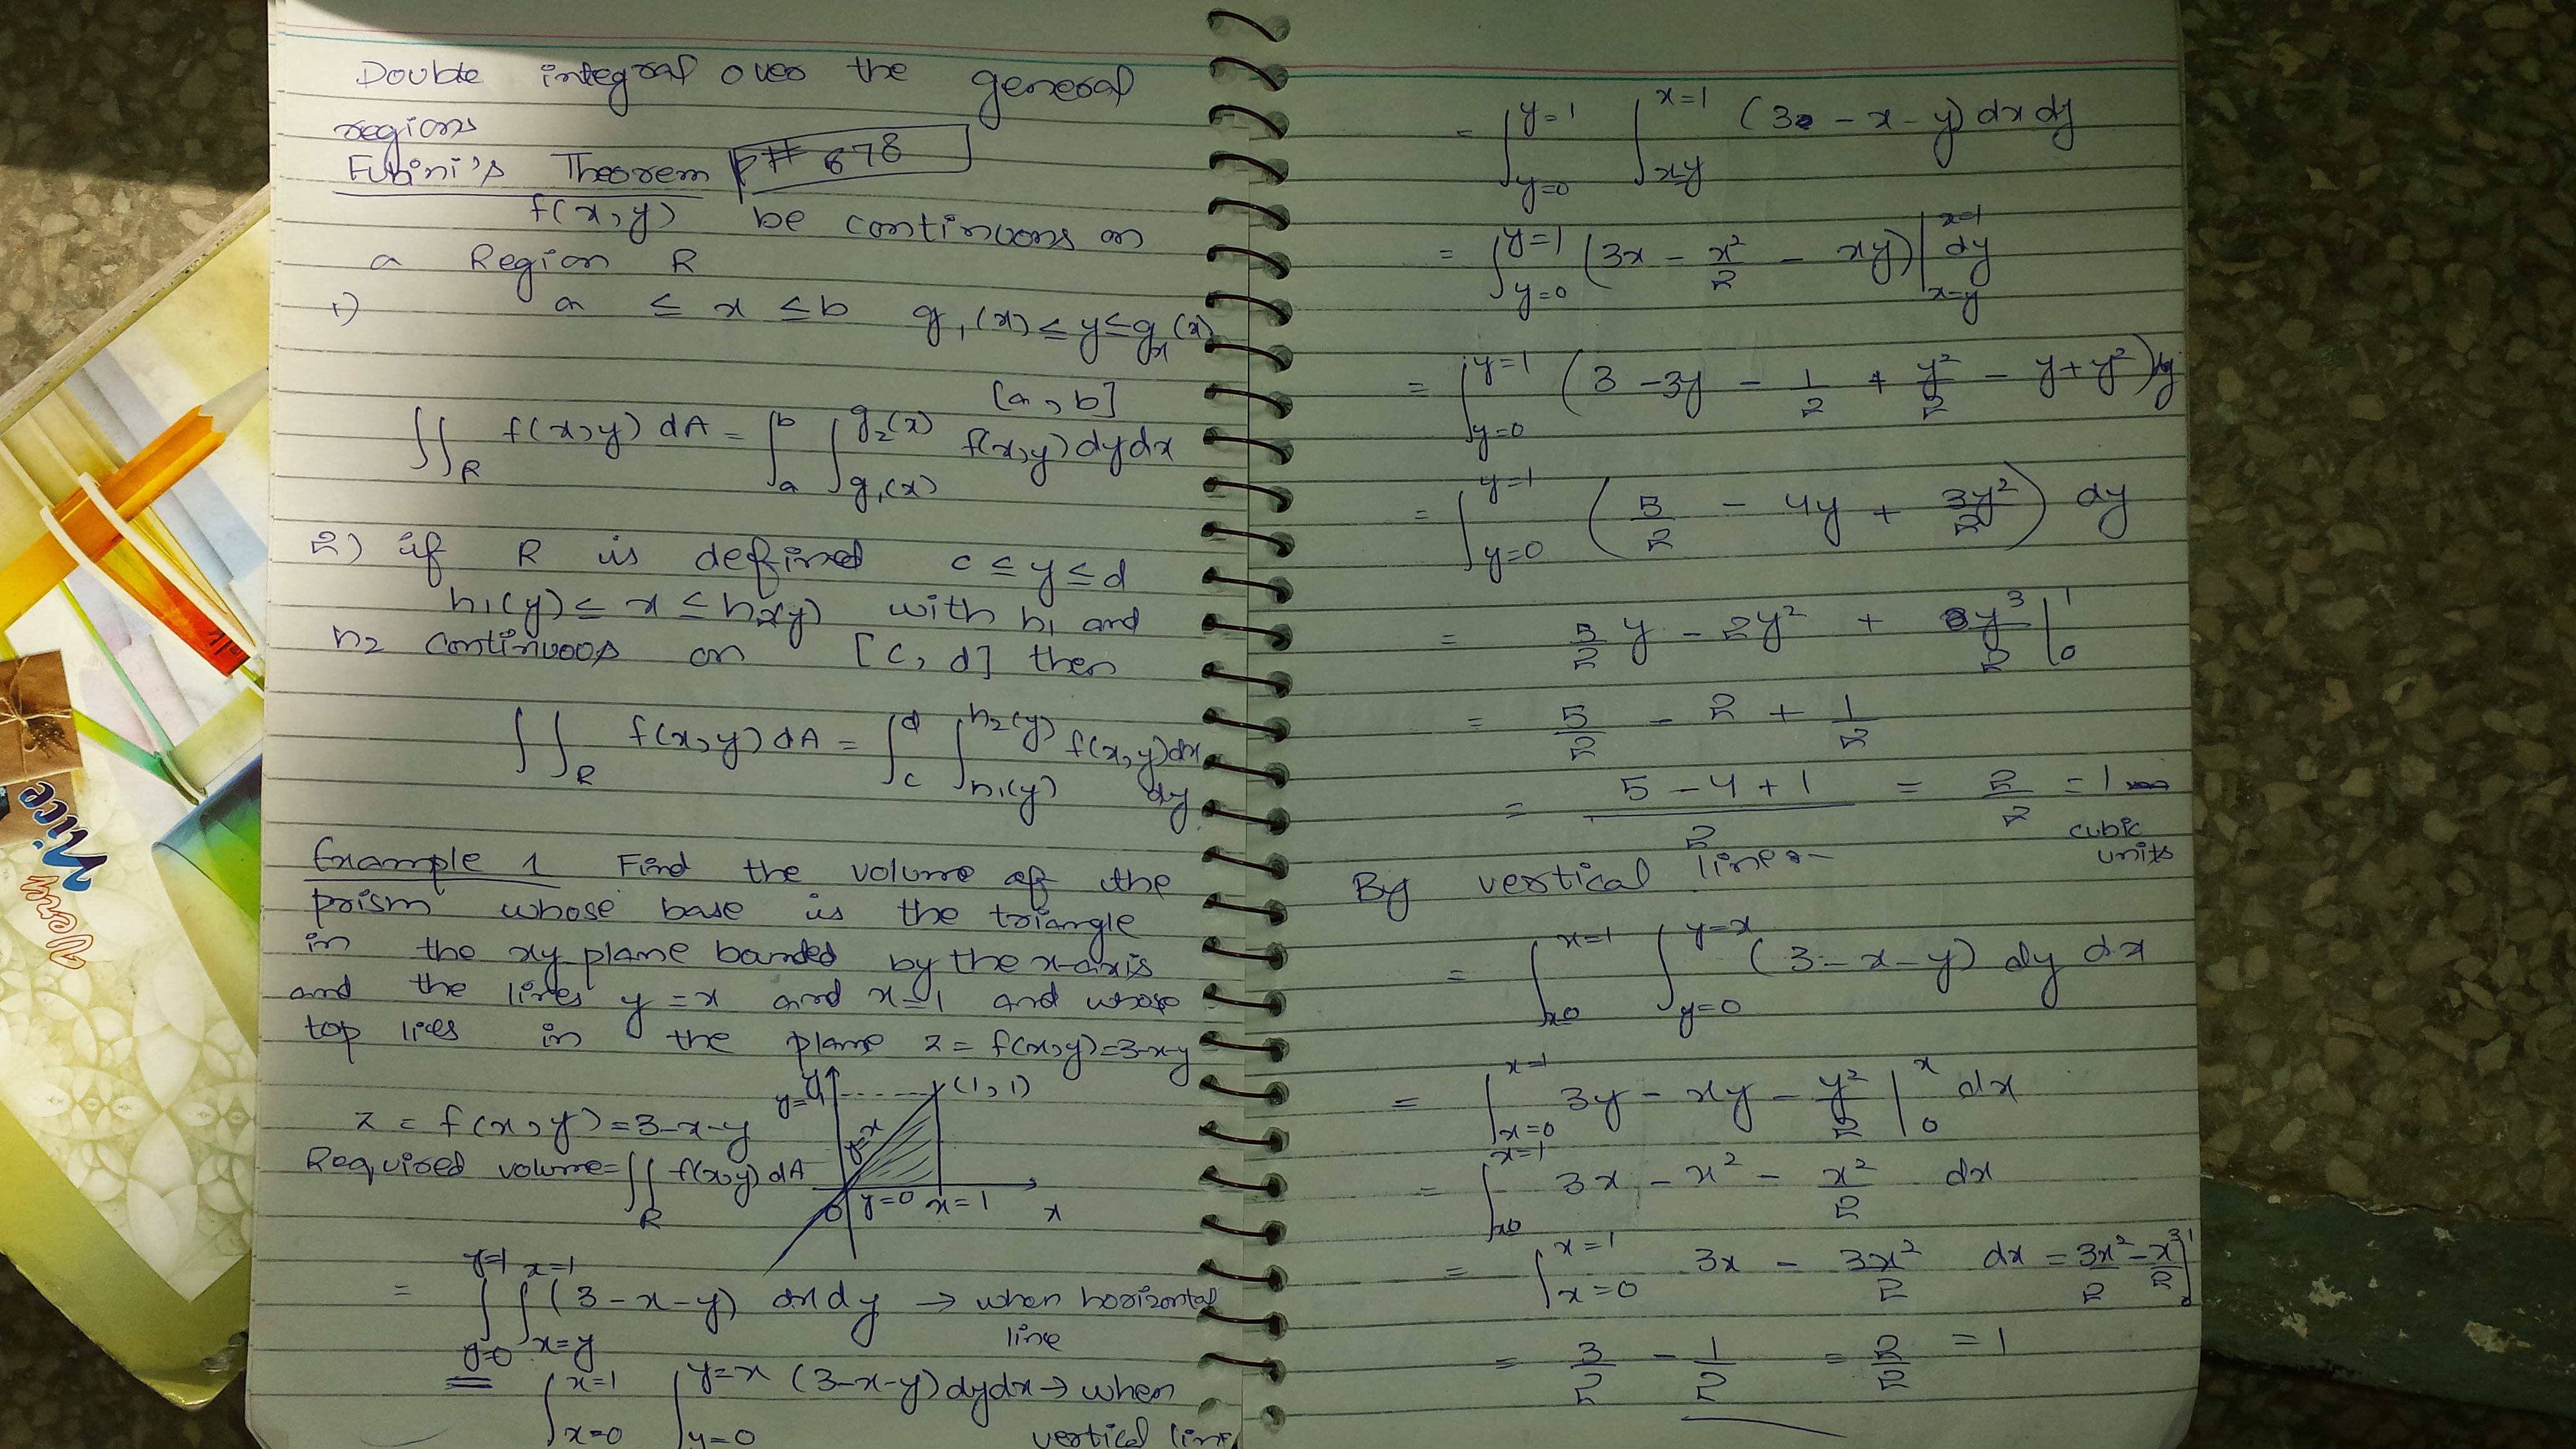 Double integral over the general
regions
Fubini's Theorem P# 678
f(x,y) be continuous on
a Region R
1) a ≤ x ≤ b g₁(x) ≤ y ≤ g₂(x)
[a, b]
∬_R f(x,y) dA = ∫_a^b ∫_{g₁(x)}^{g₂(x)} f(x,y) dy dx
2) if R is defined c ≤ y ≤ d
h₁(y) ≤ x ≤ h₂(y) with h₁ and
h₂ continuous on [c, d] then
∬_R f(x,y) dA = ∫_c^d ∫_{h₁(y)}^{h₂(y)} f(x,y) dx
dy
Example 1 Find the volume of the
prism whose base is the triangle
in the xy plane bounded by the x-axis
and the lines y = x and x = 1 and whose
top lies in the plane z = f(x,y) = 3-x-y
z = f(x,y) = 3-x-y
Required volume = ∬_R f(x,y) dA
y
y=1
(1,1)
y=x
0 y=0 x=1 x
= ∫_{y=0}^{y=1} ∫_{x=y}^{x=1} (3-x-y) dx dy → when horizontal
line
= ∫_{x=0}^{x=1} ∫_{y=0}^{y=x} (3-x-y) dy dx → when
vertical line
= ∫_{y=0}^{y=1} ∫_{x=y}^{x=1} (3 - x - y) dx dy
= ∫_{y=0}^{y=1} (3x - x²/2 - xy) |_{x=y}^{x=1} dy
= ∫_{y=0}^{y=1} (3 - 3y - 1/2 + y²/2 - y + y²) dy
= ∫_{y=0}^{y=1} (5/2 - 4y + 3y²/2) dy
= 5/2 y - 2y² + y³/2 |_0^1
= 5/2 - 2 + 1/2
= (5 - 4 + 1)/2 = 2/2 = 1
cubic
units
By vertical line:-
= ∫_{x=0}^{x=1} ∫_{y=0}^{y=x} (3-x-y) dy dx
= ∫_{x=0}^{x=1} 3y - xy - y²/2 |_0^x dx
= ∫_{x=0}^{x=1} 3x - x² - x²/2 dx
= ∫_{x=0}^{x=1} 3x - 3x²/2 dx = 3x²/2 - x³/2 |_0^1
= 3/2 - 1/2 = 2/2 = 1